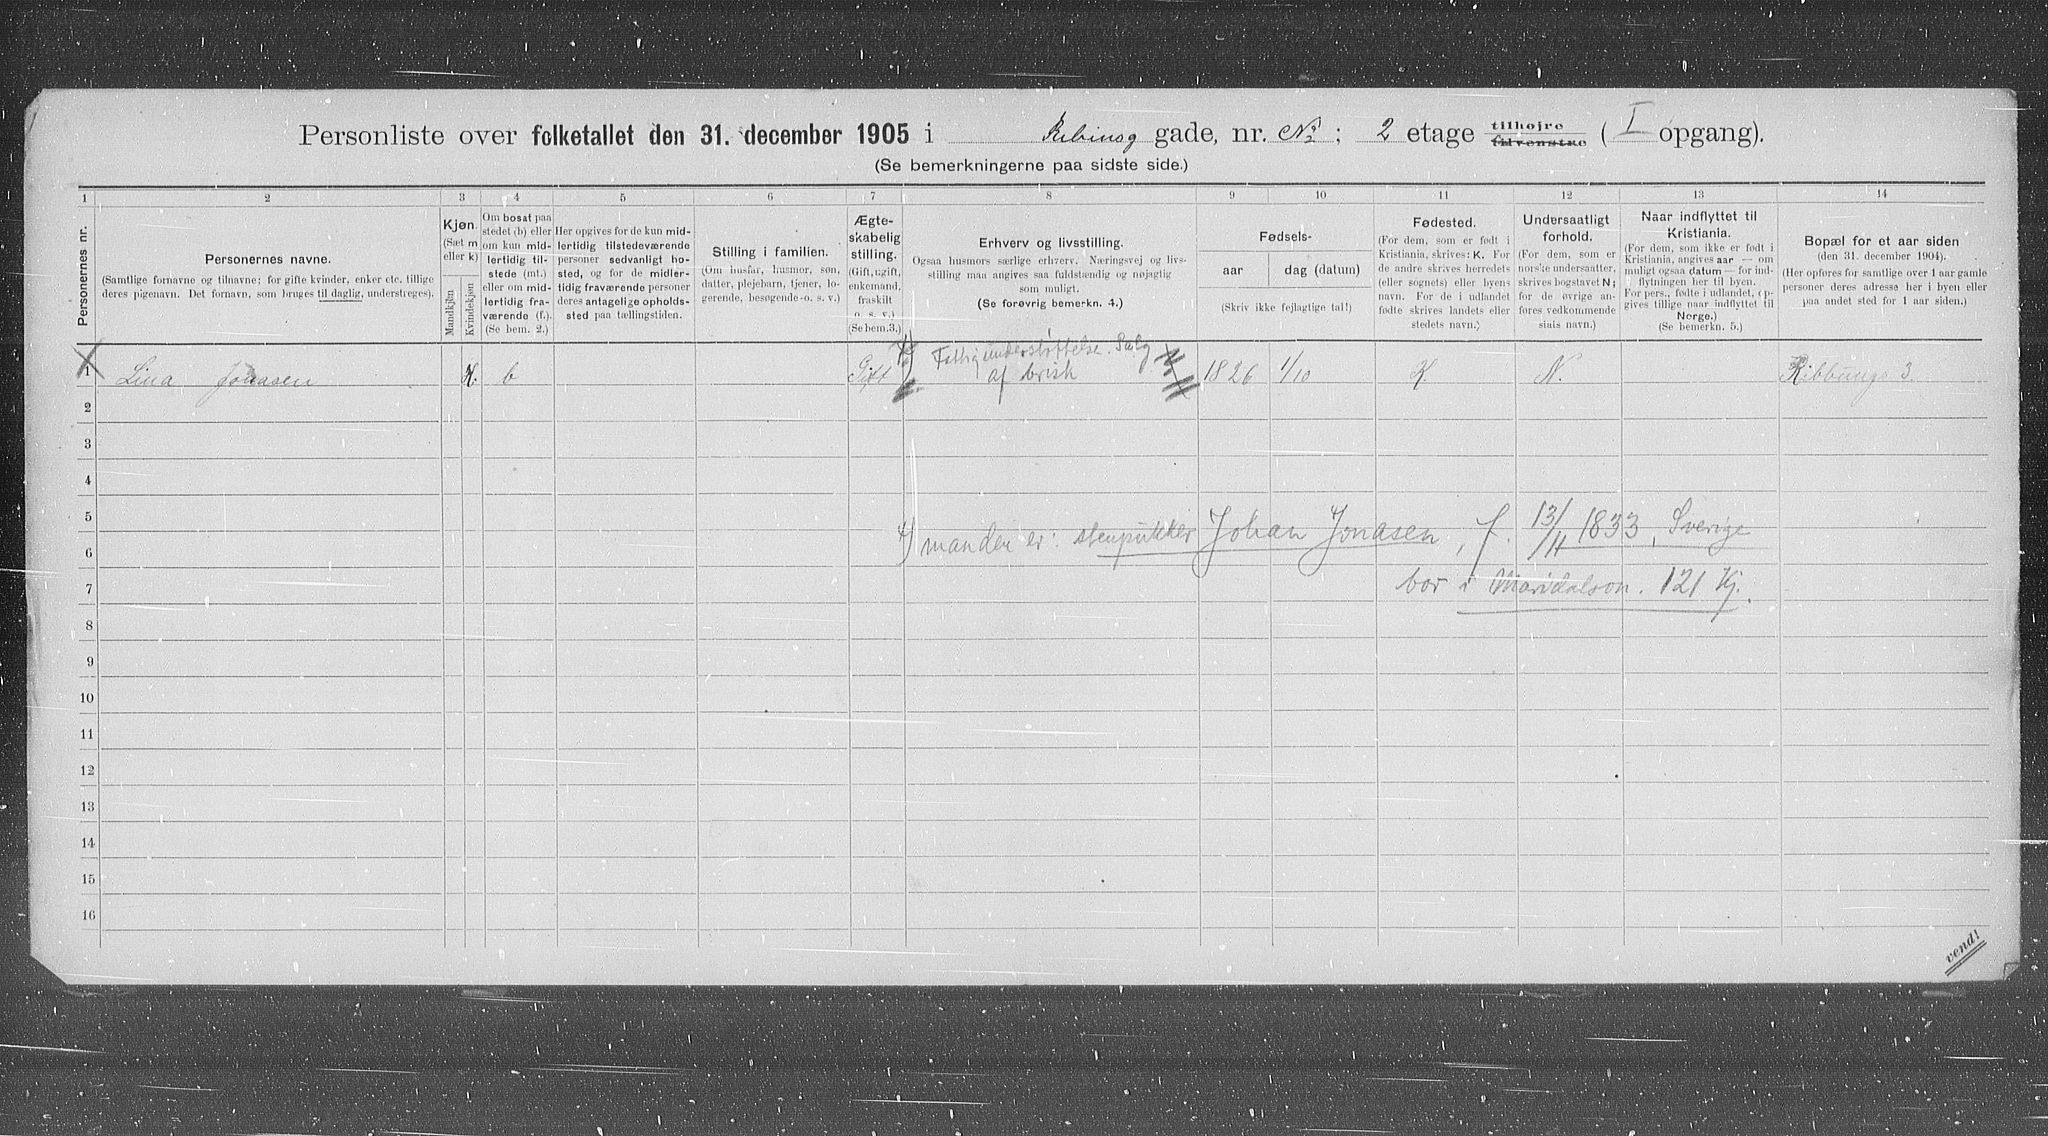 Personliste over folketallet den 31. december 1905 i Ribbinsg gade, nr. No; 2 etage tilhøjre tilvenstre (I opgang).
(Se bemerkningerne paa sidste side.)
1 2 3 4 5 6 7 8 9 10 11 12 13 14
Personernes nr.
Personernes navne.
(Samtlige fornavne og tilnavne; for gifte kvinder, enker etc. tillige
deres pigenavn. Det fornavn, som bruges til daglig, understreges).
Kjøn.
(Sæt m
eller k)
Mandkjøn
Kvindekjøn
Om bosat paa
stedet (b) eller
om kun mid-
lertidig til-
stede (mt.)
eller om mid-
lertidig fra-
værende (f.).
(Se bem. 2.)
Her opgives for de kun mid-
lertidig tilstedeværende
personer sedvanligt bo-
sted, og for de midler-
tidig fraværende personer
deres antagelige opholds-
sted paa tællingstiden.
Stilling i familien.
(Om husfar, husmor, søn,
datter, plejebarn, tjener, lo-
gerende, besøgende o. s. v.)
Ægte-
skabelig
stilling.
(Gift, ugift,
enkemand,
fraskilt
o. s. v.)
(Se bem. 3.)
Erhverv og livsstilling.
Ogsaa husmors særlige erhverv. Næringsvej og livs-
stilling maa angives saa fuldstændig og nøjagtig
som muligt.
(Se forøvrig bemerkn. 4.)
Fødsels-
aar
dag (datum)
(Skriv ikke fejlagtige tal!)
Fødested.
(For dem, som er født i
Kristiania, skrives: K. For
de andre skrives herredets
(eller sognets) eller byens
navn. For de i udlandet
fødte skrives landets eller
stedets navn.)
Undersaatligt
forhold.
(For dem, som er
norske undersaatter,
skrives bogstavet N;
for de øvrige an-
føres vedkommende
stats navn.)
Naar indflyttet til
Kristiania.
(For dem, som ikke er født i
Kristiania, angives aar — om
muligt ogsaa datum — for ind-
flytningen her til byen.
For pers., fødte i udlandet, op-
gives tillige naar indflyttet til
Norge.)
(Se bemerkn. 5.)
Bopæl for et aar siden
(den 31. december 1904).
(Her opføres for samtlige over 1 aar gamle
personer deres adresse her i byen eller
paa andet sted for 1 aar siden.)
1 Lina Jonasen K. b Gift Fattigunderstøttelse. Salg 1826 1/10 K. N. Ribbungs 3.
af brisk
2
3
4
5
manden er: stenpukker Johan Jonasen, f. 13/11 1833, Sverige
6
bor i Maridalsvn. 121 Kj.
7
8
9
10
11
12
13
14
15
16
vend!